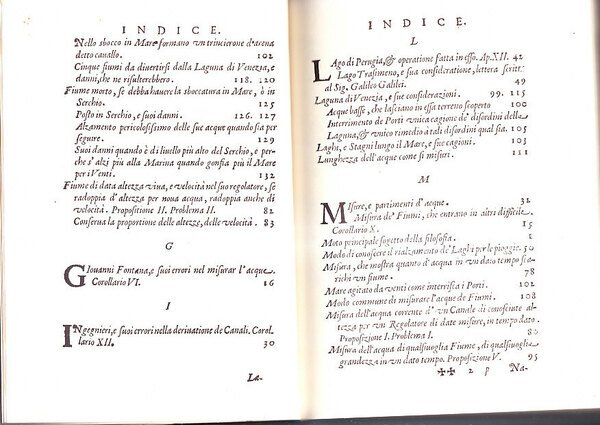 INDICE.
Nello sbocco in Mare formano vn trincierone d'arena
detto cauallo. 102
Cinque fiumi da diuertirsi dalla Laguna di Venezia, e
danni, che ne risulterebbero. 118. 120
Fiume morto, se debba hauere la sboccatura in Mare, ò in
Serchio. 125
Posto in Serchio, e suoi danni. 126. 127
Alzamento pericolosissimo delle sue acque quando sia per
seguire. 129
Suoi danni quando è di liuello più alto del Serchio, e per-
che s'alzi più alla Marina quando gonfia più il Mare
per i Venti. 132
Fiume di data altezza viua, e velocità nel suo regolatore, se
radoppia d'altezza per noua acqua, radoppia anche di
velocità. Propositione II. Problema II. 82
Conserua la proportione delle altezze, delle velocità. 83
G
GIouanni Fontana, e suoi errori nel misurar l'acque
Corollario VI. 16
I
INgegnieri, e suoi errori nella deriuatione de Canali. Corol.
lario XII. 30
La-
INDICE.
L
LAgo di Perugia, & operatione fatta in esso. Ap. XII. 42
Lago Trasimeno, e sua consideratione, lettera scritt.
al Sig. Galileo Galilei. 44
Laguna di Venezia, e sue considerazioni. 99. 115
Acque basse, che lasciano in essa terreno scoperto 100
Interrimento de Porti vnica cagione de' disordini della
Laguna, & vnico remedio à tali disordini qual sia. 105
Laghi, e Stagni lungo il Mare, e sue cagioni. 103
Lunghezza dell'acque come si misuri. 111
M
MIsure, e partimenti d'acque. 32
Misura de' Fiumi, che entrano in altri difficile.
Corollario X. 15
Moto principale sogetto della filosofia. 2
Modo di conoscere il rialzamento de' Laghi per le pioggie. 50
Misura, che mostra quanto d'acqua in vn dato tempo sca-
richi vn fiume. 78
Mare agitato da venti come interrisca i Porti. 102
Modo commune di misurare l'acque de Fiumi. 108
Misura dell'acqua corrente d'vn Canale di conosciute al-
tezza per vn Regolatore di date misure, in tempo dato.
Proposizione I. Problema I. 80
Misura dell'acqua di qualsiuoglia Fiume, di qualsiuoglia
grandezza in vn dato tempo. Proposizione V. 95
✠✠ 2 Na-